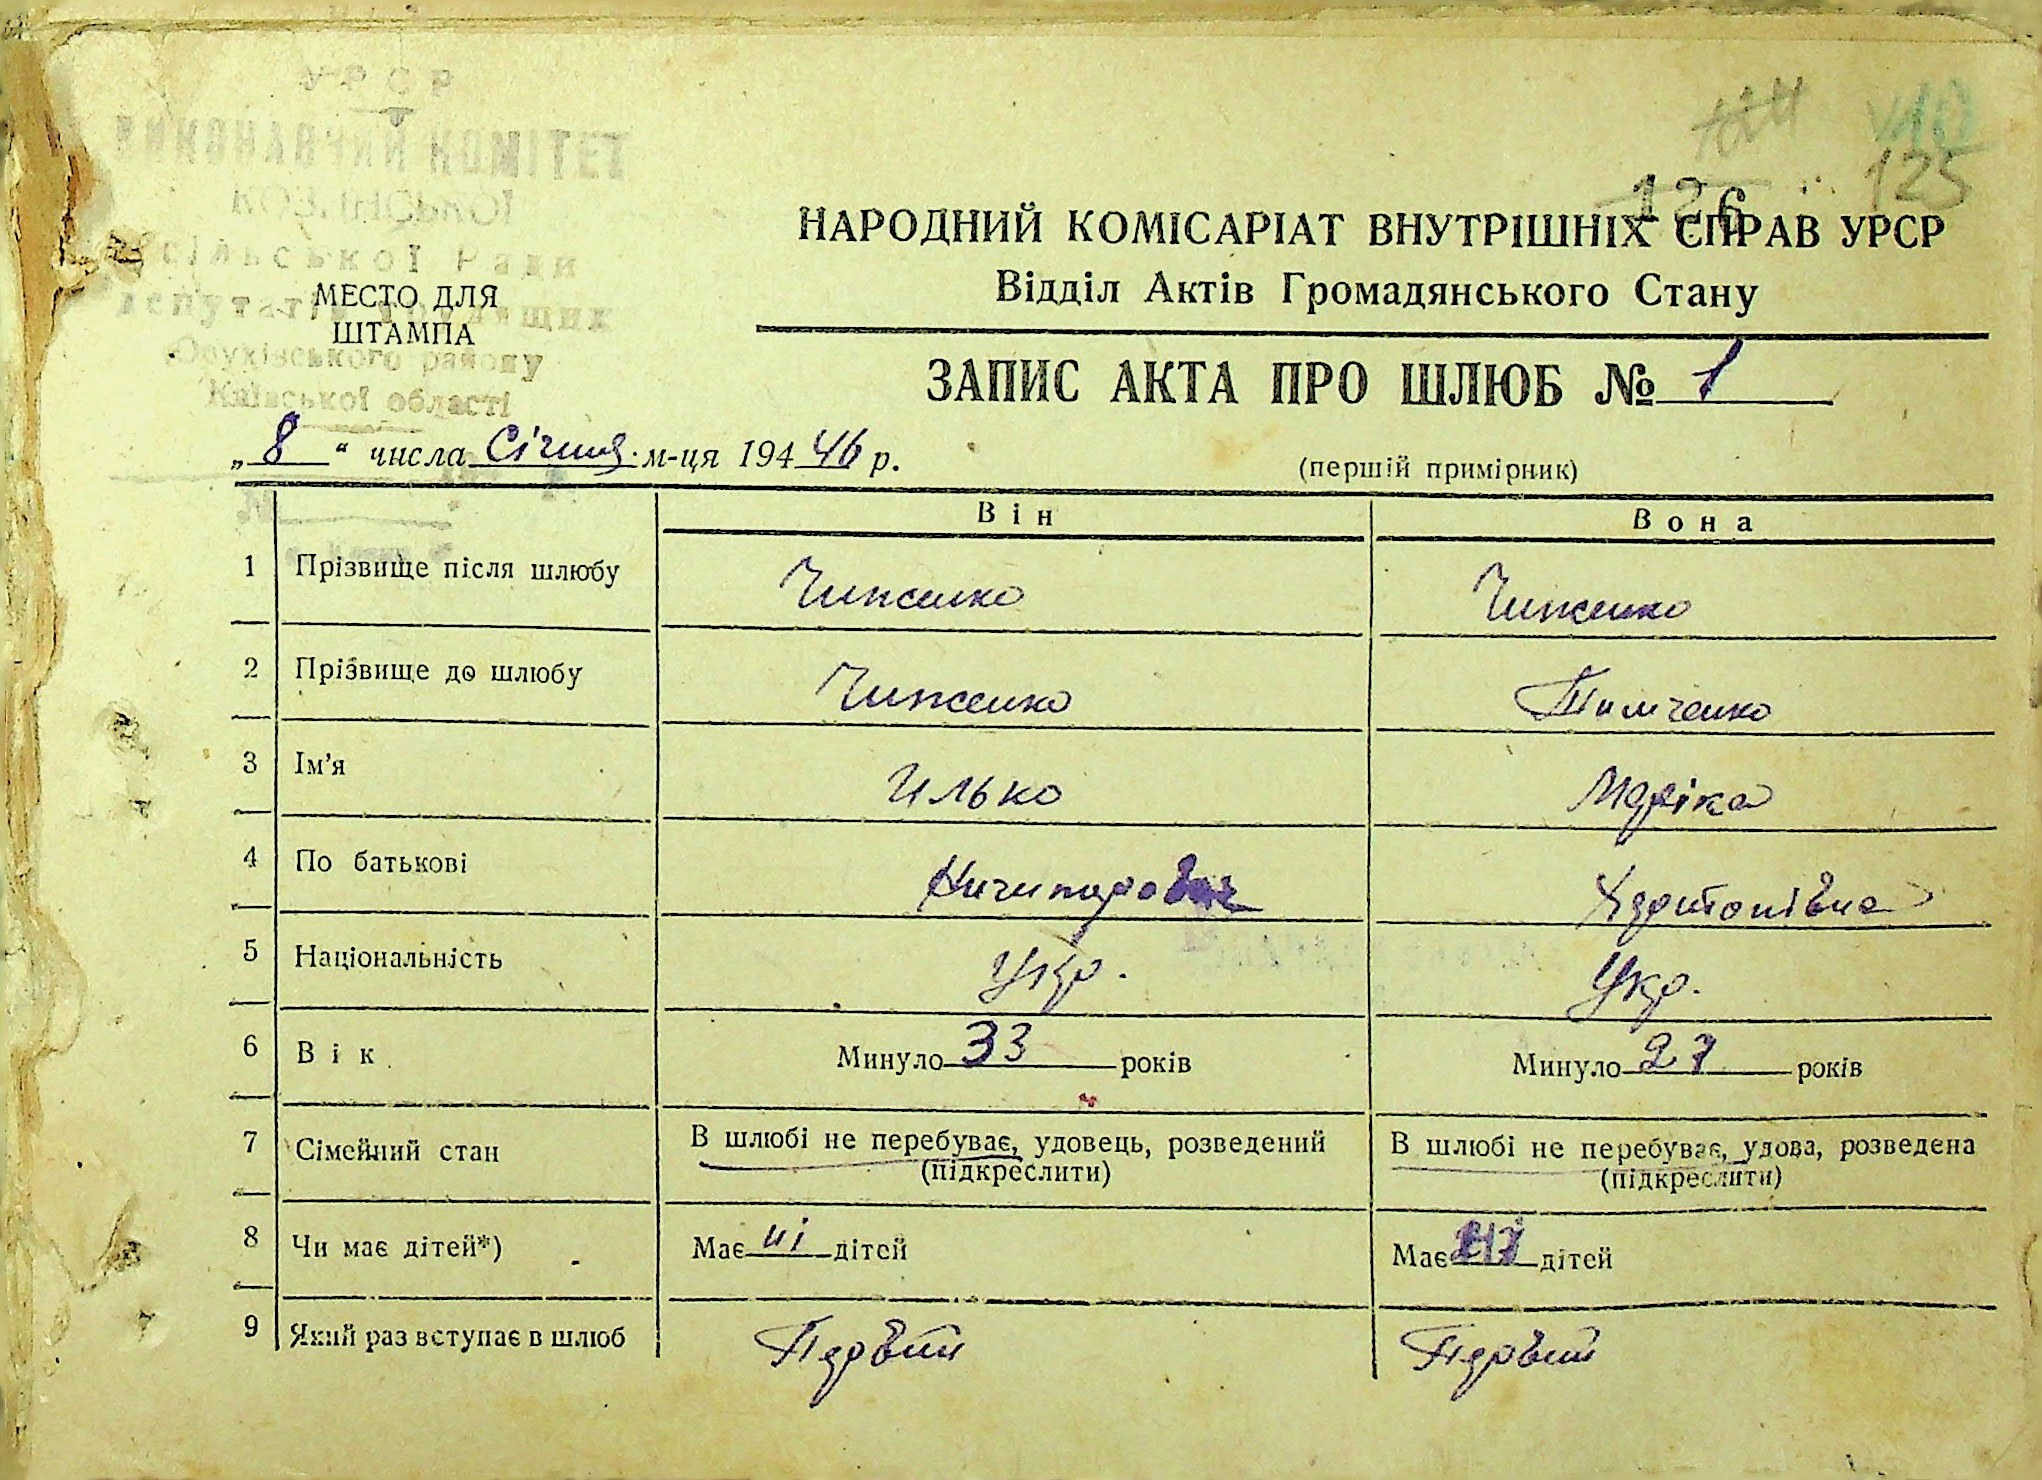 УРСР
ВИКОНАВЧИЙ КОМІТЕТ
КОЗИНСЬКОЇ
сільської Ради
депутатів трудящих
Обухівського району
Київської області
№
МЕСТО ДЛЯ
ШТАМПА
110
125
126
НАРОДНИЙ КОМІСАРІАТ ВНУТРІШНІХ СПРАВ УРСР
Відділ Актів Громадянського Стану
ЗАПИС АКТА ПРО ШЛЮБ № 1
„8“ числа Січня м-ця 194 46 р.
(першій примірник)
Він
Вона
1 Прізвище після шлюбу Чиженко Чиженко
2 Прізвище до шлюбу Чиженко Тимченко
3 Ім'я Илько Маріка
4 По батькові Ничипорович Харитонівна
5 Національність Укр. Укр.
6 Вік Минуло 33 років Минуло 27 років
7 Сімейний стан В шлюбі не перебуває, удовець, розведений В шлюбі не перебуває, удова, розведена
(підкреслити) (підкреслити)
8 Чи має дітей*) Має ні дітей Має дітей
9 Який раз вступає в шлюб Первий Первий